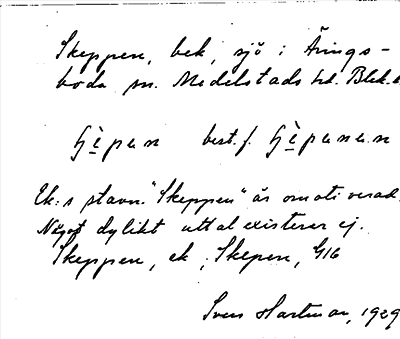 Skeppen, bek, sjö i Årings-
boda sn. Medelstads hd. Blek.
best. f.
Ek:s stavn. "Skeppen" är omotiverad.
Något dylikt uttal existerar ej.
Skeppen, ek, Skepen, G16
Sven Hartman, 1929